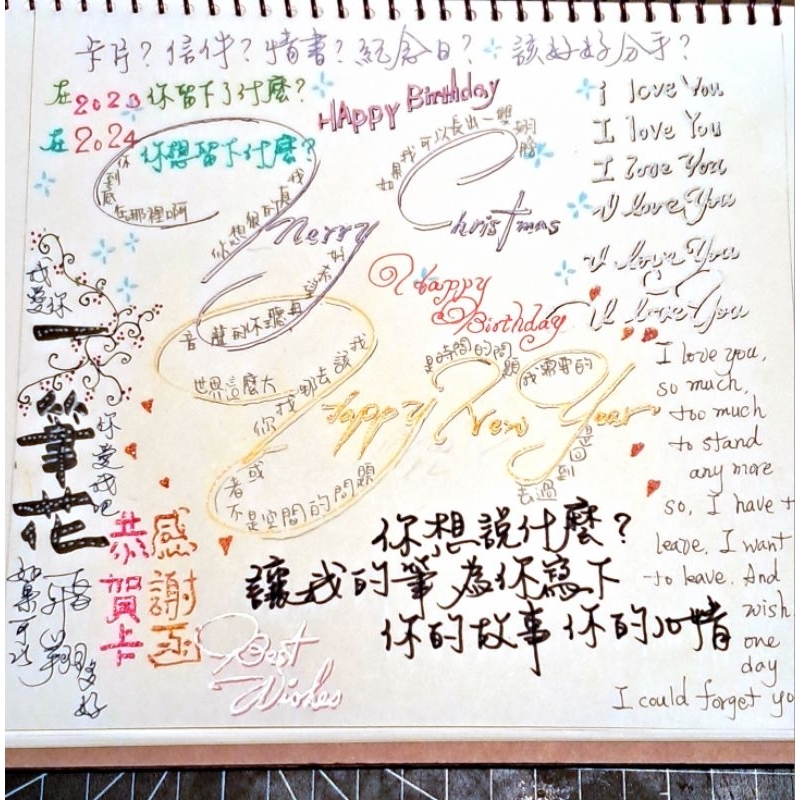 卡片？信件？情書？紀念日？該好好分手？
在2023你留下了什麼？
在2024你想留下什麼？
HAppy Birthday
i love You
I love You
I love You
I love You
I love You
I love You
你到底在那裡啊
如果我可以長出一雙翅膀
Merry Christmas
Happy Birthday
音聲的你聽
世界這麼大
你我到那去該我
或者不是空間的問題
是時間的問題
我需要的
是回到過去
Happy New Year
I love you,
so much,
too much
to stand
any more
so, I have t
leave. I want
to leave. And
wish
one
day
I could forget yo
我愛你
一筆花
你愛我吧
恭賀卡
感謝函
如果可以
一路翔
多好
Best Wishes
你想說什麼？
讓我的筆為你寫下
你的故事你的心情